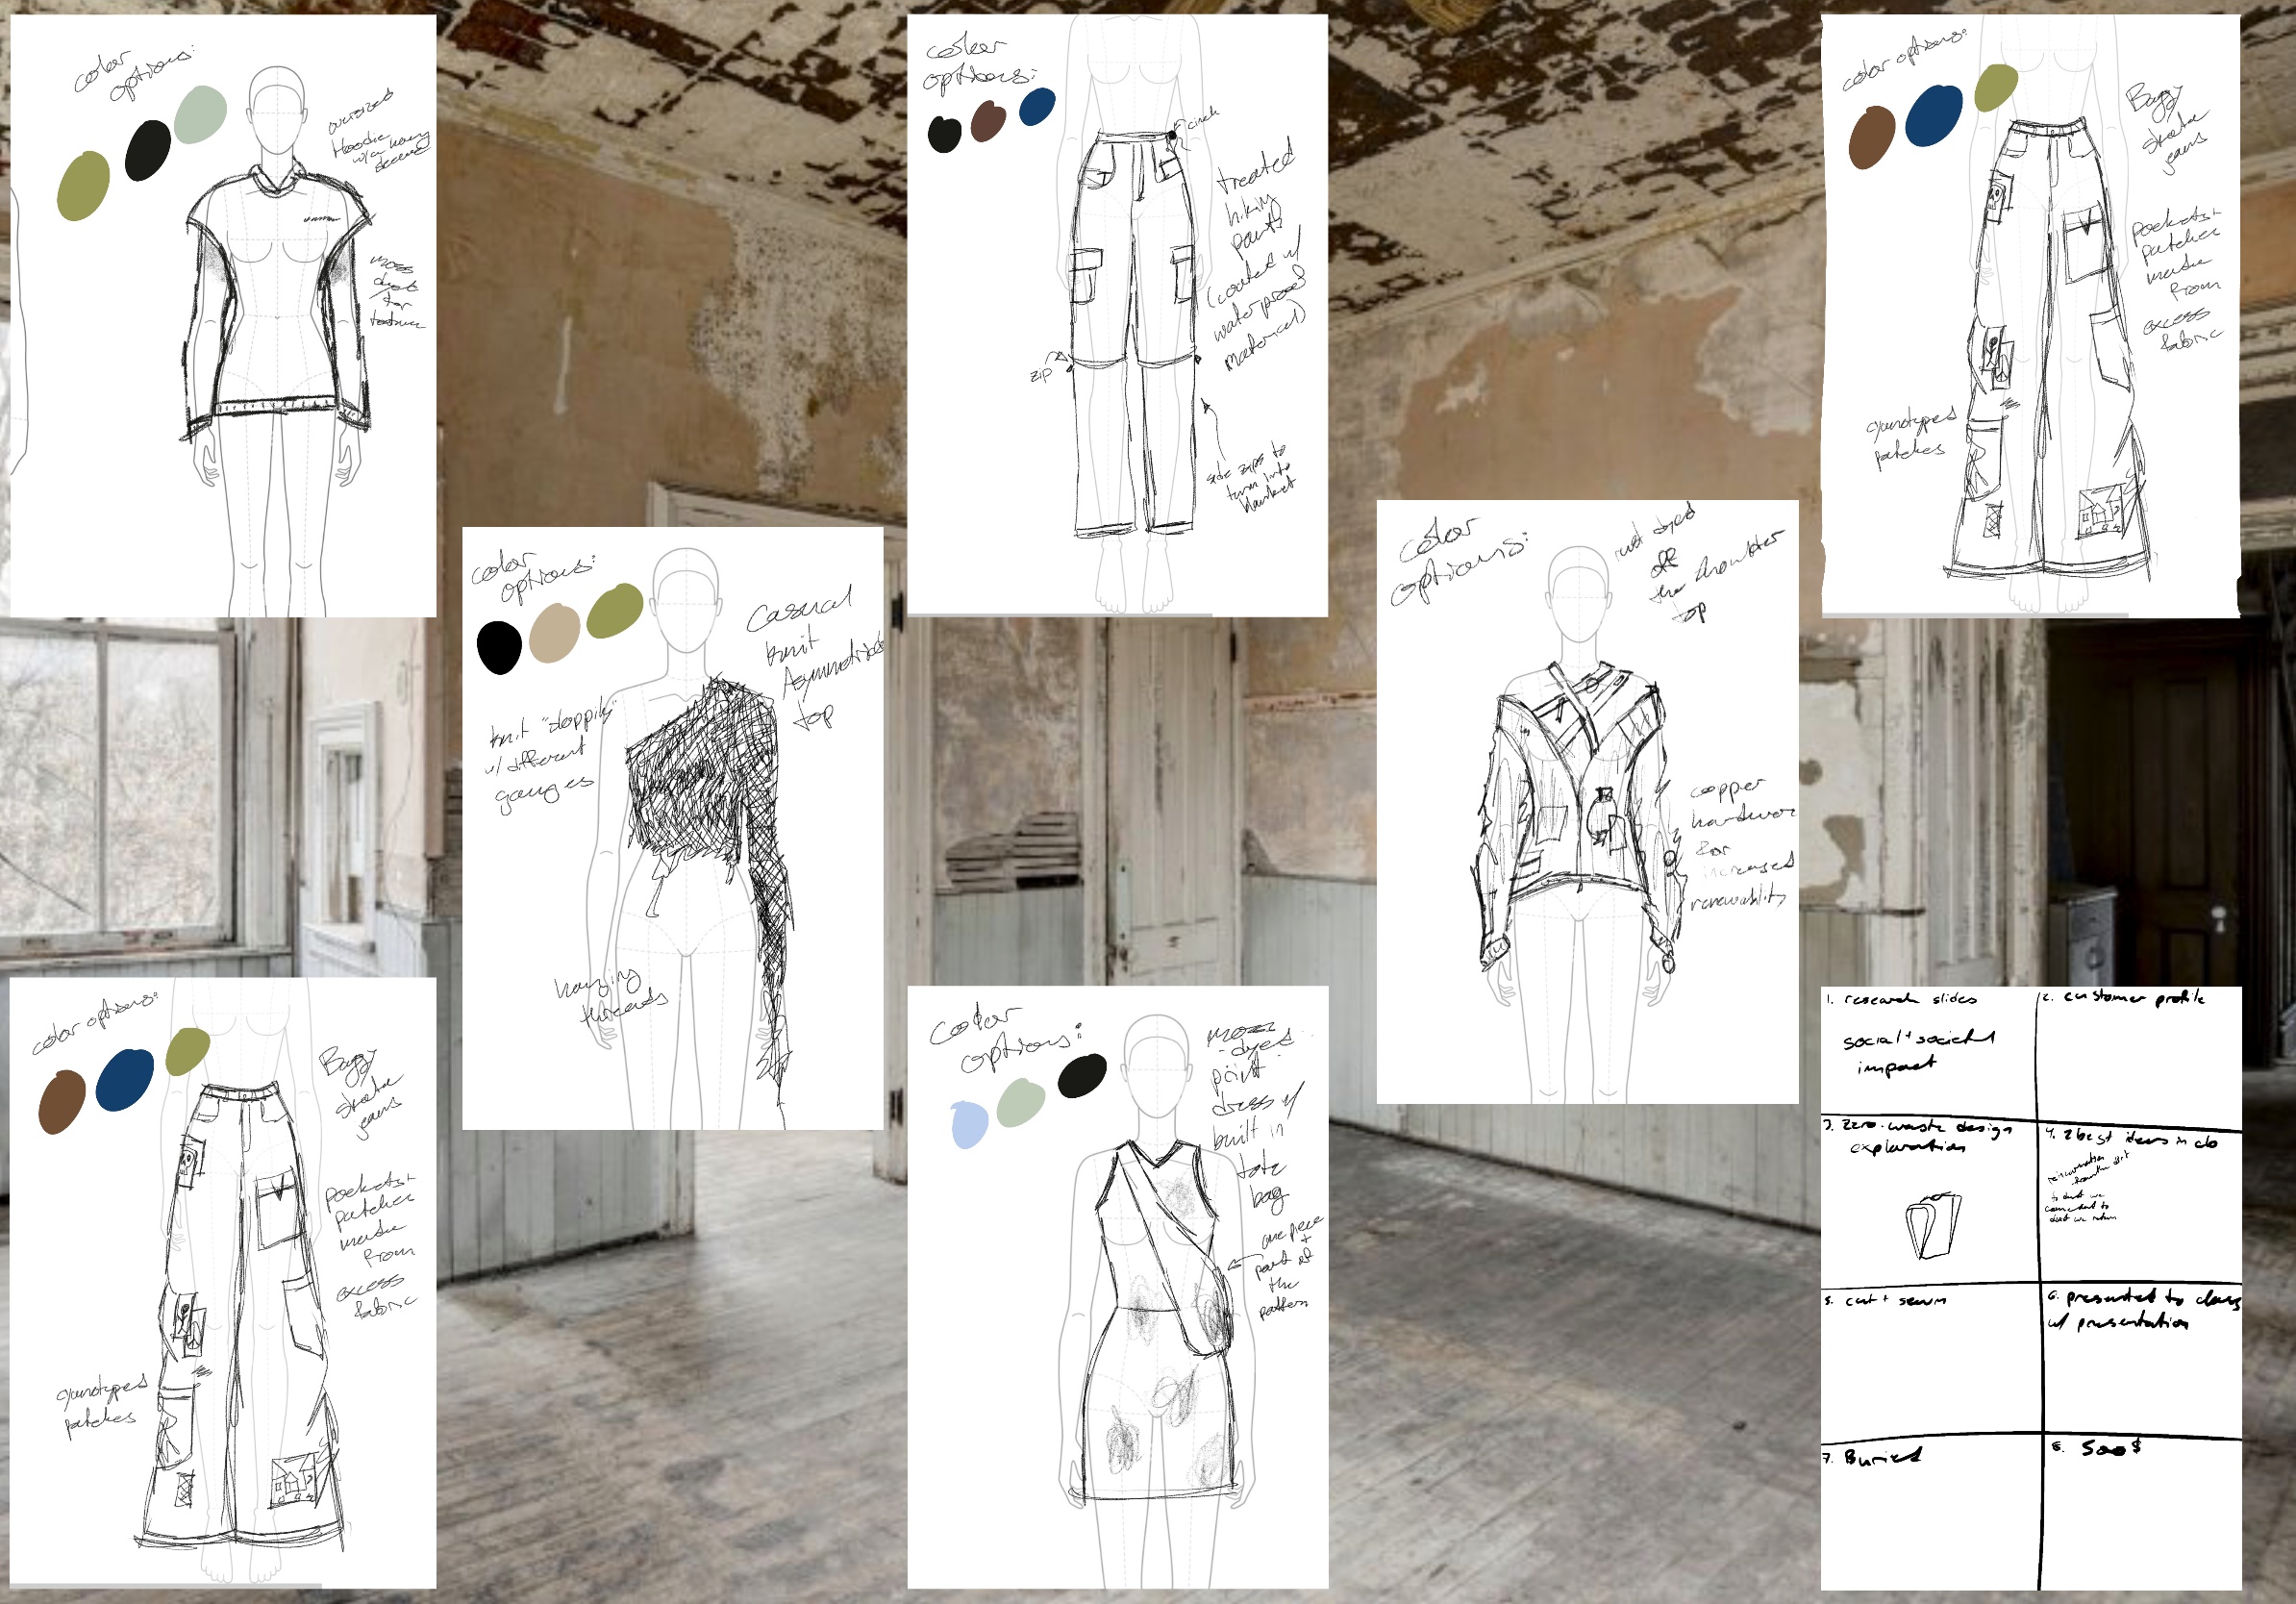 color
options:
oversized
Hoodie
w/a heavy
moss
dust
for
texture
color
options:
cinch
treated
hiking
pants
(coated w/
waterproof
material)
zip
side zips to
turn into
blanket
color options:
Baggy
skater
jeans
pockets +
patches
made
from
excess
fabric
patches
color
options:
casual
knit
Asymmetrical
top
knit "sloppily"
w/ different
gauges
hanging
threads
color
options:
rust dyed
off
the shoulder
top
copper
hardware
for
increased
renewability
color options:
Baggy
skater
jeans
pockets +
patches
made
from
excess
fabric
patches
color
options:
moss
-dyed
print
dress w/
built in
tote
bag
one piece
+
part of
the
pattern
1. research slides
social + societal
impact
2. customer profile
3. zero-waste design
exploration
4. 2 best items in clo
reincarnation
to dust we
return
5. cut + sewn
6. presented to class
w/ presentation
7. Buried
8. 500$